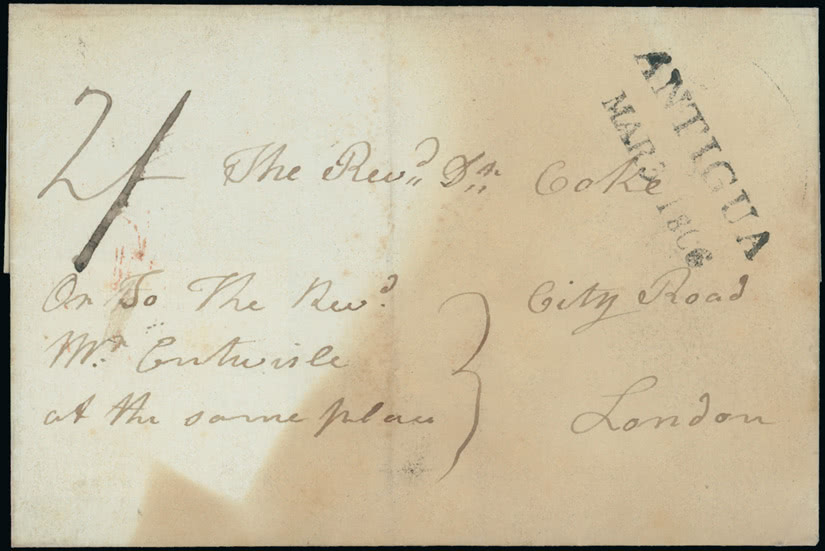 ANTIGUA
MAR 3 1806
2/
The Revd Dr Coke
City Road
London
Or To The Revd
Mr Entwisle
at the same place